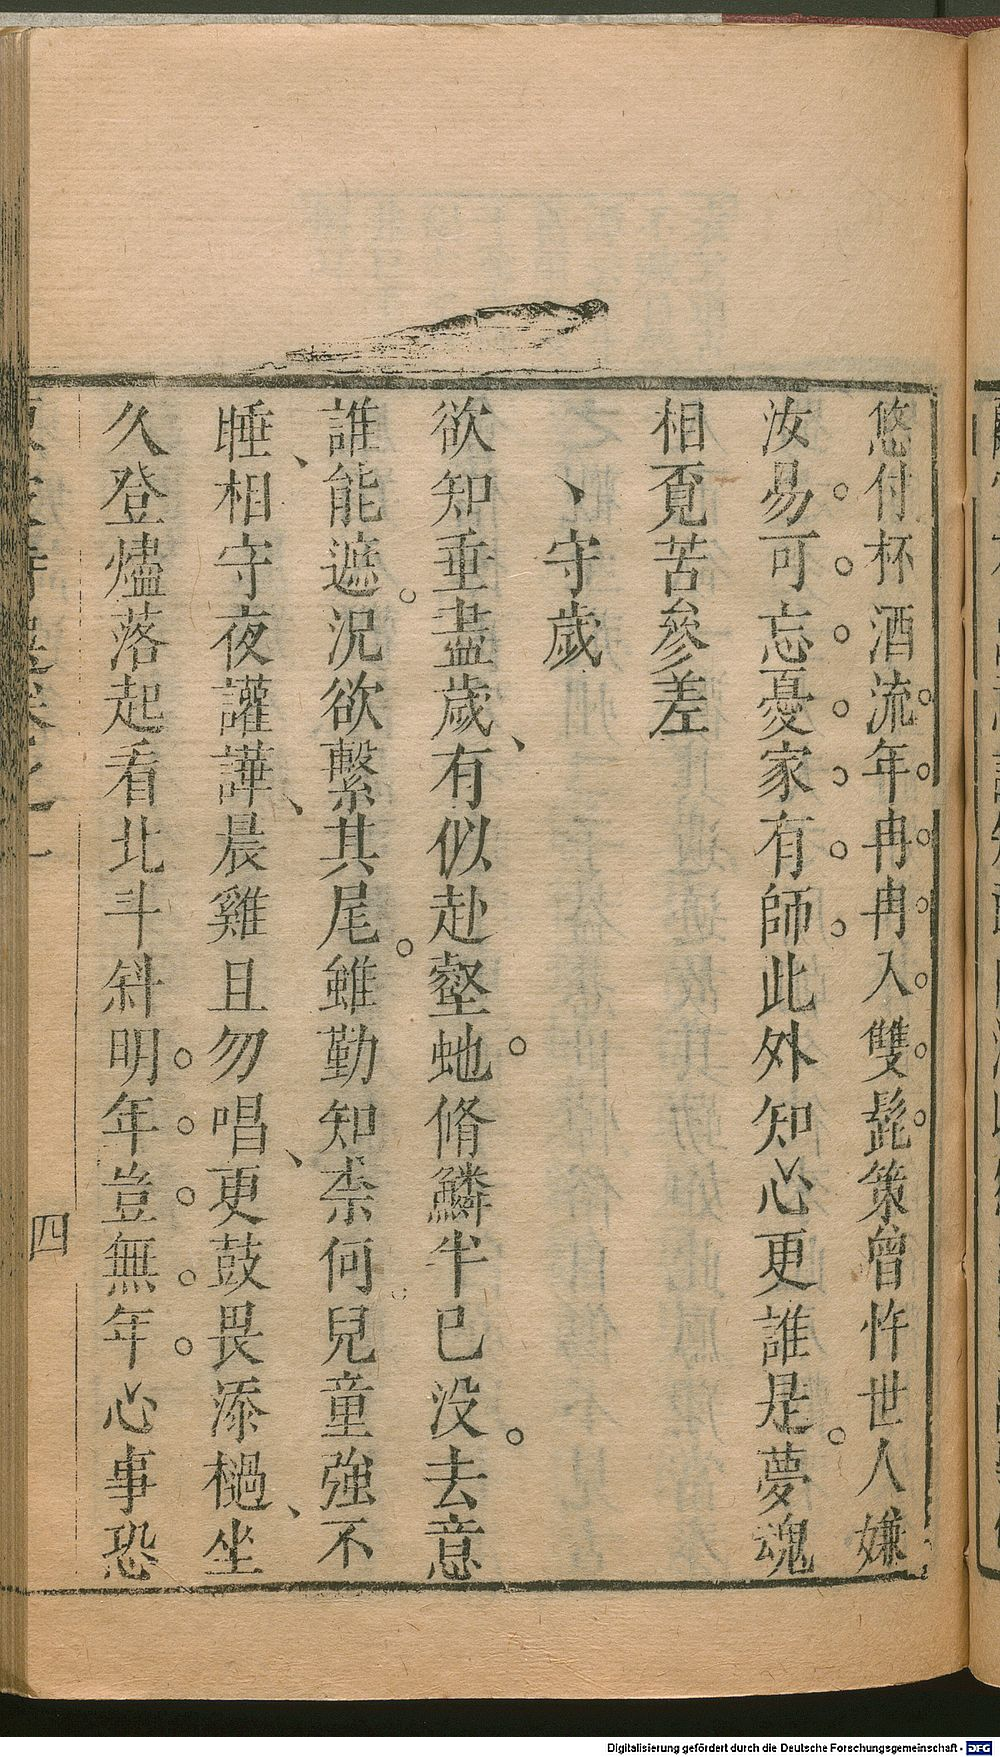 悠付杯酒流年冉冉入雙髭策曾忤世人嫌
汝易可忘憂家有師此外知心更誰是夢魂
相覔苦參差
守歲
欲知垂盡歲有似赴壑虵脩鱗半已没去意
誰能遮況欲繫其尾雖勤知柰何兒童強不
睡相守夜讙譁晨雞且勿唱更鼓畏添檛坐
久登燼落起看北斗斜明年豈無年心事恐
四
Digitalisierung gefördert durch die Deutsche Forschungsgemeinschaft - DFG